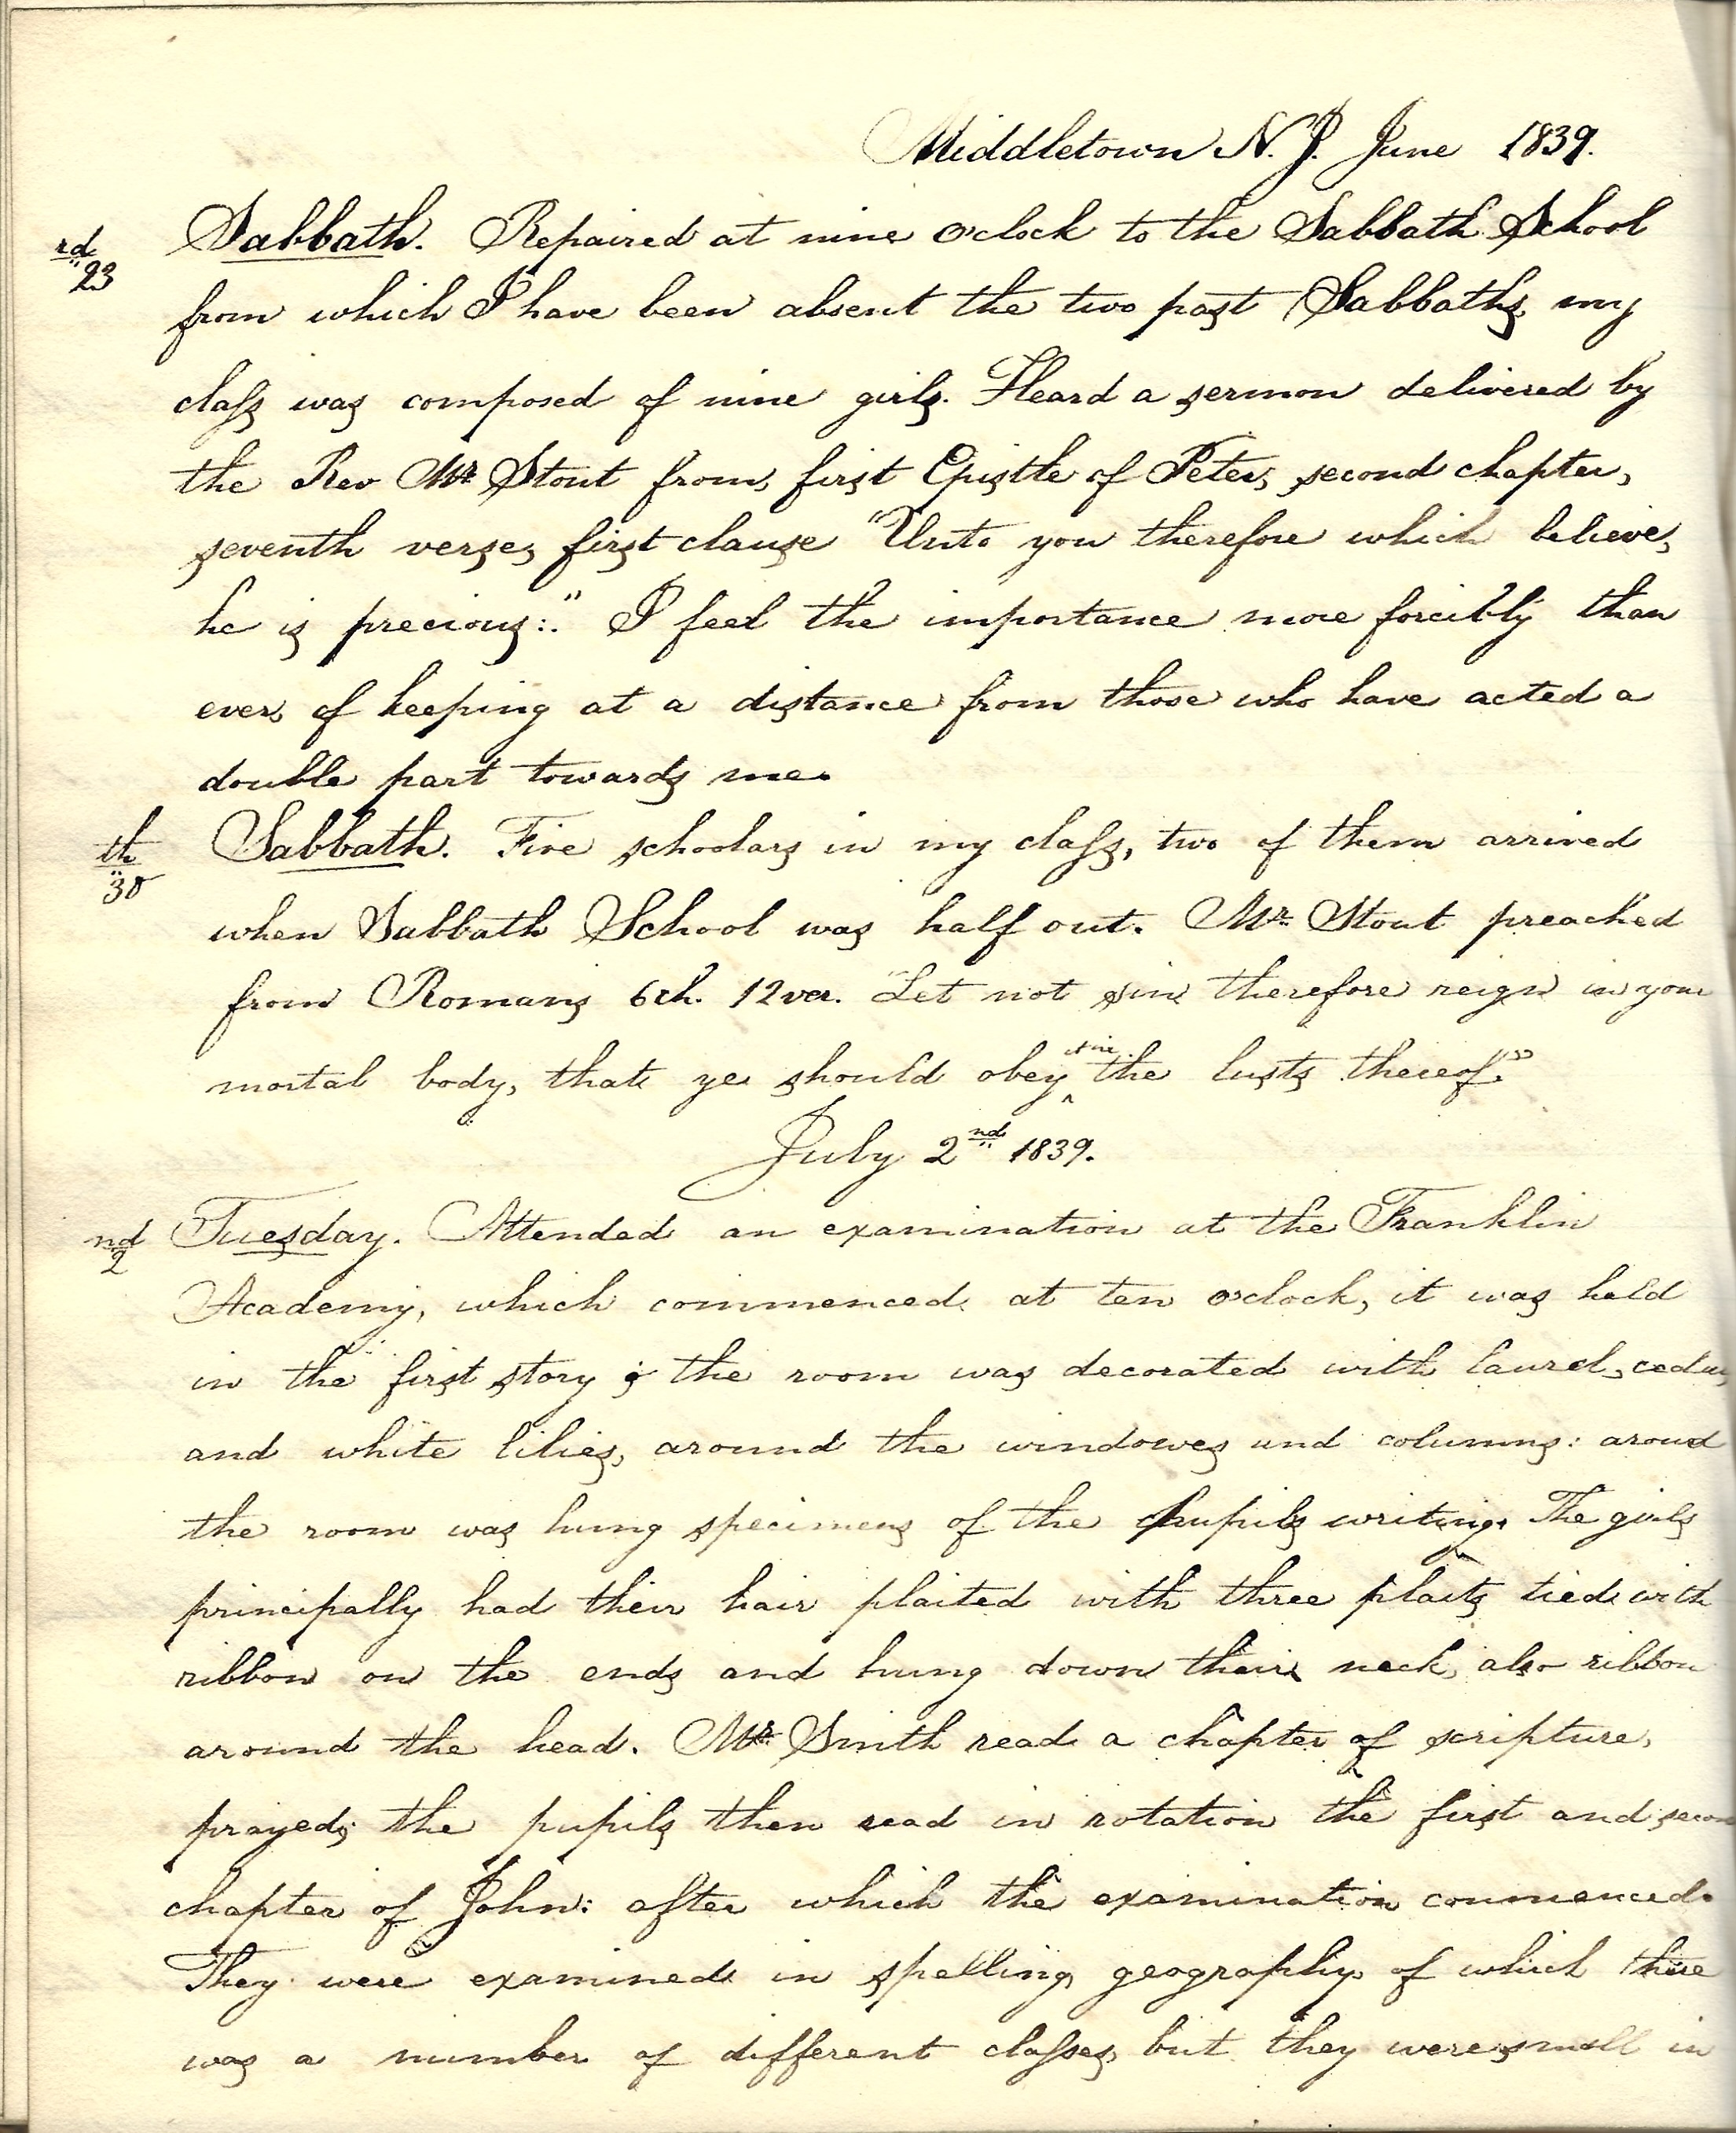 Middletown N. J. June 1839.
rd 23 Sabbath. Repaired at nine o'clock to the Sabbath School
from which I have been absent the two past Sabbaths, my
class was composed of nine girls. Heard a sermon delivered by
the Rev Mr. Stout from, first Epistle of Peter, second chapter,
seventh verse, first clause "Unto you therefore which believe,
he is precious:." I feel the importance more forcibly than
ever, of keeping at a distance from those who have acted a
double part towards me.
th 30 Sabbath. Five schoolars in my class, two of them arrived
when Sabbath School was half out. Mr. Stout preached
from Romans 6ch. 12ver. "Let not sin therefore reign in your
mortal body, that ye should obey it in the lusts thereof."
July 2nd 1839.
nd 2 Tuesday. Attended an examination at the Franklin
Academy, which commenced at ten o'clock, it was held
in the first story; the room was decorated with laurel, cedar,
and white lilies, around the windowes and columns: aroud
the room was hung specimens of the pupils writing. The girls
principally had their hair plaited with three plaits tied with
ribbon on the ends and hung down their neck, also ribbon
around the head. Mr. Smith read a chapter of scripture,
prayed; the pupils then read in rotation the first and secon
chapter of John: after which the examination commenced.
They were examined in spelling, geography, of which there
was a number of different classes, but they were small in